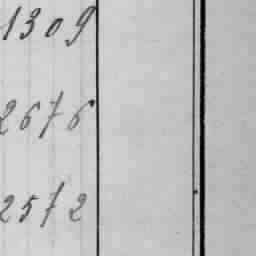 1309
2676
2572